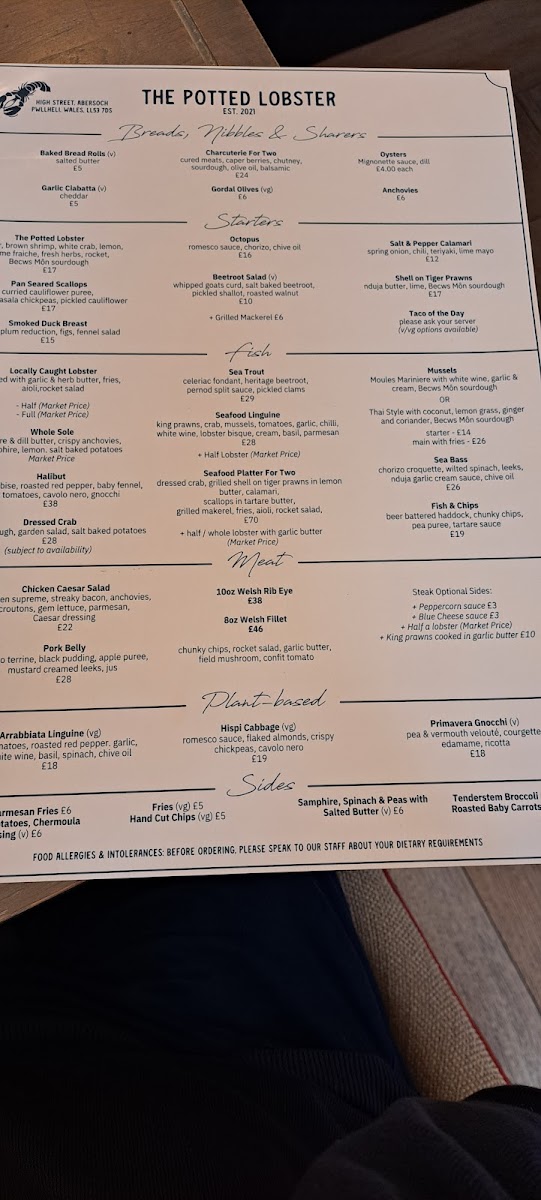 HIGH STREET, ABERSOCH
PWLLHELI, WALES, LL53 7DS
THE POTTED LOBSTER
EST. 2021
Breads, Nibbles & Sharers
Baked Bread Rolls (v)
salted butter
£5
Garlic Ciabatta (v)
cheddar
£5
Charcuterie For Two
cured meats, caper berries, chutney,
sourdough, olive oil, balsamic
£24
Gordal Olives (vg)
£6
Oysters
Mignonette sauce, dill
£4.00 each
Anchovies
£6
Starters
The Potted Lobster
, brown shrimp, white crab, lemon,
me fraiche, fresh herbs, rocket,
Becws Môn sourdough
£17
Pan Seared Scallops
curried cauliflower puree,
asala chickpeas, pickled cauliflower
£17
Smoked Duck Breast
plum reduction, figs, fennel salad
£15
Octopus
romesco sauce, chorizo, chive oil
£16
Beetroot Salad (v)
whipped goats curd, salt baked beetroot,
pickled shallot, roasted walnut
£10
+ Grilled Mackerel £6
Salt & Pepper Calamari
spring onion, chili, teriyaki, lime mayo
£12
Shell on Tiger Prawns
nduja butter, lime, Becws Môn sourdough
£17
Taco of the Day
please ask your server
(v/vg options available)
Fish
Locally Caught Lobster
ed with garlic & herb butter, fries,
aioli,rocket salad
- Half (Market Price)
- Full (Market Price)
Whole Sole
re & dill butter, crispy anchovies,
phire, lemon, salt baked potatoes
Market Price
Halibut
bise, roasted red pepper, baby fennel,
tomatoes, cavolo nero, gnocchi
£38
Dressed Crab
ugh, garden salad, salt baked potatoes
£28
(subject to availability)
Sea Trout
celeriac fondant, heritage beetroot,
pernod split sauce, pickled clams
£29
Seafood Linguine
king prawns, crab, mussels, tomatoes, garlic, chilli,
white wine, lobster bisque, cream, basil, parmesan
£28
+ Half Lobster (Market Price)
Seafood Platter For Two
dressed crab, grilled shell on tiger prawns in lemon
butter, calamari,
scallops in tartare butter,
grilled makerel, fries, aioli, rocket salad,
£70
+ half / whole lobster with garlic butter
(Market Price)
Mussels
Moules Mariniere with white wine, garlic &
cream, Becws Môn sourdough
OR
Thai Style with coconut, lemon grass, ginger
and coriander, Becws Môn sourdough
starter - £14
main with fries - £26
Sea Bass
chorizo croquette, wilted spinach, leeks,
nduja garlic cream sauce, chive oil
£26
Fish & Chips
beer battered haddock, chunky chips,
pea puree, tartare sauce
£19
Meat
Chicken Caesar Salad
en supreme, streaky bacon, anchovies,
croutons, gem lettuce, parmesan,
Caesar dressing
£22
Pork Belly
o terrine, black pudding, apple puree,
mustard creamed leeks, jus
£28
10oz Welsh Rib Eye
£38
8oz Welsh Fillet
£46
chunky chips, rocket salad, garlic butter,
field mushroom, confit tomato
Steak Optional Sides:
+ Peppercorn sauce £3
+ Blue Cheese sauce £3
+ Half a lobster (Market Price)
+ King prawns cooked in garlic butter £10
Plant-based
Arrabbiata Linguine (vg)
matoes, roasted red pepper, garlic,
ite wine, basil, spinach, chive oil
£18
Hispi Cabbage (vg)
romesco sauce, flaked almonds, crispy
chickpeas, cavolo nero
£19
Primavera Gnocchi (v)
pea & vermouth velouté, courgette
edamame, ricotta
£18
Sides
armesan Fries £6
tatoes, Chermoula
sing (v) £6
Fries (vg) £5
Hand Cut Chips (vg) £5
Samphire, Spinach & Peas with
Salted Butter (v) £6
Tenderstem Broccoli
Roasted Baby Carrots
FOOD ALLERGIES & INTOLERANCES: BEFORE ORDERING, PLEASE SPEAK TO OUR STAFF ABOUT YOUR DIETARY REQUIREMENTS